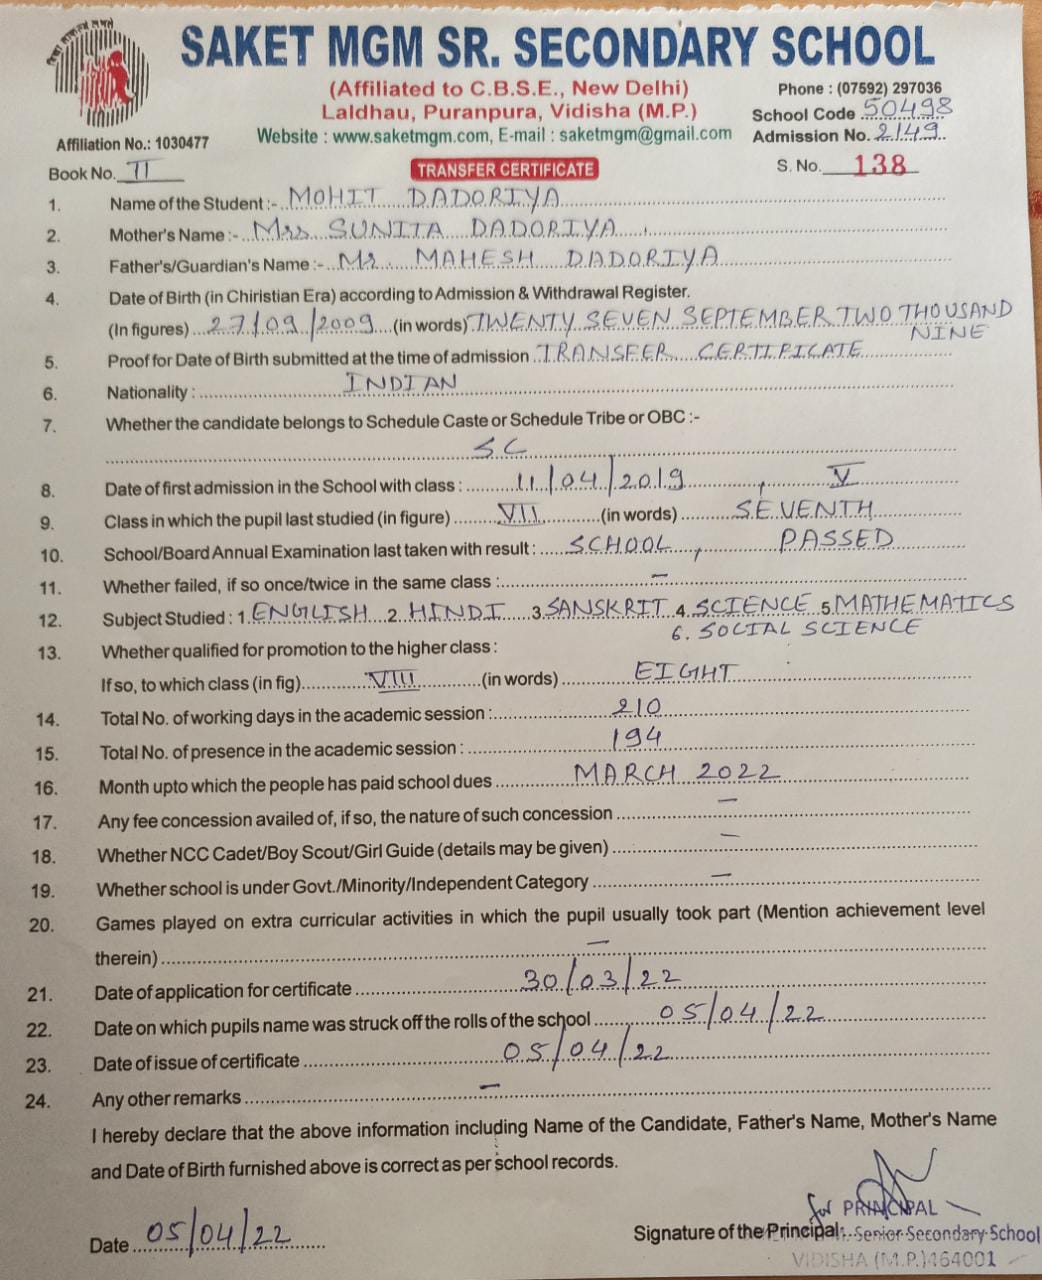 SAKET MGM SR. SECONDARY SCHOOL
(Affiliated to C.B.S.E., New Delhi)
Laldhau, Puranpura, Vidisha (M.P.)
Website : www.saketmgm.com, E-mail : saketmgm@gmail.com
Phone : (07592) 297036
School Code 50498
Admission No. 2149
Affiliation No.: 1030477
Book No. II
TRANSFER CERTIFICATE
S. No. 138
1. Name of the Student :- MOHIT DADORIYA
2. Mother's Name :- Mrs SUNITA DADORIYA
3. Father's/Guardian's Name :- Mr. MAHESH DADORIYA
4. Date of Birth (in Chiristian Era) according to Admission & Withdrawal Register.
(In figures) 27/09/2009 (in words) TWENTY SEVEN SEPTEMBER TWO THOUSAND
NINE
5. Proof for Date of Birth submitted at the time of admission TRANSFER CERTIFICATE
6. Nationality : INDIAN
7. Whether the candidate belongs to Schedule Caste or Schedule Tribe or OBC :-
SC
8. Date of first admission in the School with class : 11/04/2019, V
9. Class in which the pupil last studied (in figure) VII (in words) SEVENTH
10. School/Board Annual Examination last taken with result : SCHOOL, PASSED
11. Whether failed, if so once/twice in the same class : —
12. Subject Studied : 1. ENGLISH 2. HINDI 3. SANSKRIT 4. SCIENCE 5. MATHEMATICS
6. SOCIAL SCIENCE
13. Whether qualified for promotion to the higher class :
If so, to which class (in fig) VIII (in words) EIGHT
14. Total No. of working days in the academic session : 210
15. Total No. of presence in the academic session : 194
16. Month upto which the people has paid school dues MARCH 2022
17. Any fee concession availed of, if so, the nature of such concession —
18. Whether NCC Cadet/Boy Scout/Girl Guide (details may be given) —
19. Whether school is under Govt./Minority/Independent Category —
20. Games played on extra curricular activities in which the pupil usually took part (Mention achievement level
therein) —
21. Date of application for certificate 30/03/22
22. Date on which pupils name was struck off the rolls of the school 05/04/22
23. Date of issue of certificate 05/04/22
24. Any other remarks —
I hereby declare that the above information including Name of the Candidate, Father's Name, Mother's Name
and Date of Birth furnished above is correct as per school records.
for PRINCIPAL
Date 05/04/22
Signature of the Principal Senior Secondary School
VIDISHA (M.P.) 464001